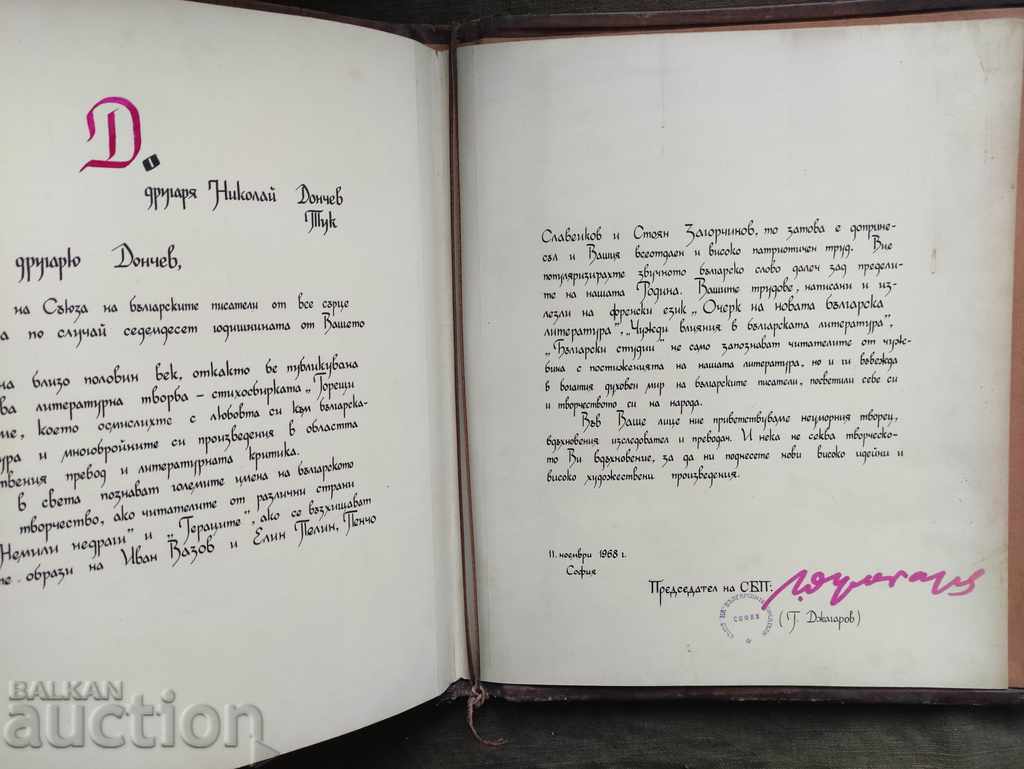 Д.
другаря Николай Дончев
Тук
другарю Дончев,
на Съюза на българските писатели от все сърце
а по случай седемдесет годишнината от Вашето
на близо половин век, откакто бе публикувана
ва литературна творба – стихосбирката „Горещи
ме, което осмислихте с любовта си към българска-
ура и многобройните си произведения в областта
ствения превод и литературната критика.
в света познават големите имена на българското
творчество, ако читателите от различни страни
„Немили недраги" и „Гераците", ако се възхищават
те образи на Иван Вазов и Елин Пелин, Пенчо
Славейков и Стоян Загорчинов, то затова е допринe-
съл и Вашия всеотдаен и високо патриотичен труд. Вие
популяризирахте звучното българско слово далеч зад предели-
те на нашата Родина. Вашите трудове, написани и из-
лезли на френски език „Очерк на новата българска
литература", „Чужди влияния в българската литература",
„Български студии" не само запознават читателите от чуж-
бина с постиженията на нашата литература, но и ги въвежда
в богатия духовен мир на българските писатели, посветили себе си
и творчеството си на народа.
Във Ваше лице ние приветствуваме неуморния творец,
вдъхновения изследовател и преводач. И нека не секва творческо-
то Ви вдъхновение, за да ни поднесете нови високо идейни и
високо художествени произведения.
11. ноември 1968 г.
София
Председател на СБП:
(Г. Джагаров)
СОФИЯ
BALKAN
auction